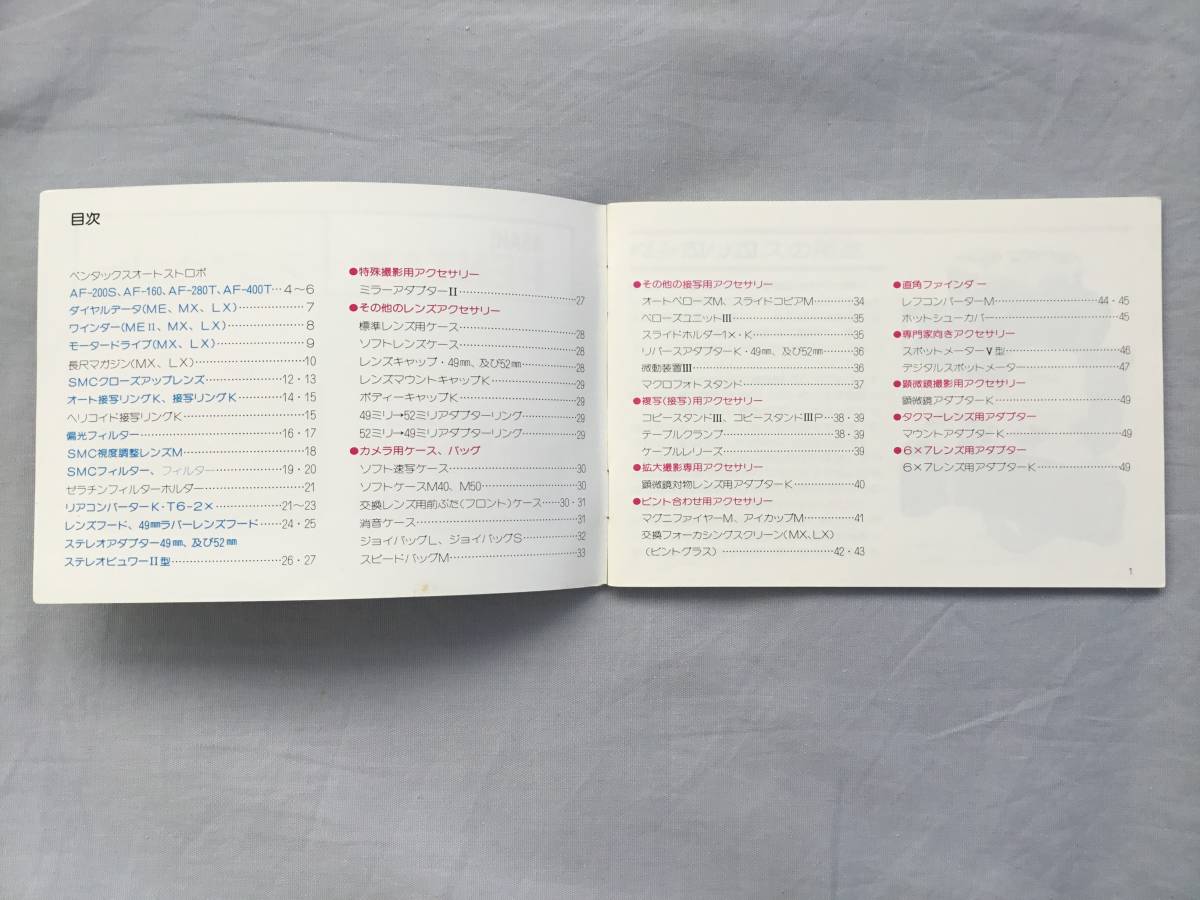 目次
ペンタックスオートストロボ
AF-200S、AF-160、AF-280T、AF-400T…4〜6
ダイヤルデータ(ME、MX、LX)…………7
ワインダー(MEⅡ、MX、LX)……………8
モータードライブ(MX、LX)……………9
長尺マガジン(MX、LX)…………………10
SMCクローズアップレンズ……………12・13
オート接写リングK、接写リングK……14・15
ヘリコイド接写リングK…………………15
偏光フィルター……………………………16・17
SMC視度調整レンズM……………………18
SMCフィルター、フィルター……………19・20
ゼラチンフィルターホルダー……………21
リアコンバーターK・T6-2×……………21〜23
レンズフード、49㎜ラバーレンズフード……24・25
ステレオアダプター49㎜、及び52㎜
ステレオビュワーⅡ型……………………26・27
●特殊撮影用アクセサリー
ミラーアダプターⅡ………………………27
●その他のレンズアクセサリー
標準レンズ用ケース………………………28
ソフトレンズケース………………………28
レンズキャップ・49㎜、及び52㎜………28
レンズマウントキャップK………………29
ボディーキャップK………………………29
49ミリ→52ミリアダプターリング………29
52ミリ→49ミリアダプターリング………29
●カメラ用ケース、バッグ
ソフト速写ケース…………………………30
ソフトケースM40、M50…………………30
交換レンズ用前ぶた(フロント)ケース……30・31
消音ケース…………………………………31
ジョイバッグL、ジョイバッグS…………32
スピードバッグM…………………………33
●その他の接写用アクセサリー
オートベローズM、スライドコピアM……34
ベローズユニットⅢ………………………35
スライドホルダー1×・K…………………35
リバースアダプターK・49㎜、及び52㎜……36
微動装置Ⅲ…………………………………36
マクロフォトスタンド……………………37
●複写(接写)用アクセサリー
コピースタンドⅢ、コピースタンドⅢP…38・39
テーブルクランプ…………………………38・39
ケーブルレリーズ…………………………39
●拡大撮影専用アクセサリー
顕微鏡対物レンズ用アダプターK………40
●ピント合わせ用アクセサリー
マグニファイヤーM、アイカップM………41
交換フォーカシングスクリーン(MX、LX)
(ピントグラス)……………………………42・43
●直角ファインダー
レフコンバーターM………………………44・45
ホットシューカバー………………………45
●専門家向きアクセサリー
スポットメーターV型……………………46
デジタルスポットメータ…………………47
●顕微鏡撮影用アクセサリー
顕微鏡アダプターK………………………49
●タクマーレンズ用アダプター
マウントアダプターK……………………49
●6×7レンズ用アダプター
6×7レンズ用アダプターK………………49
1